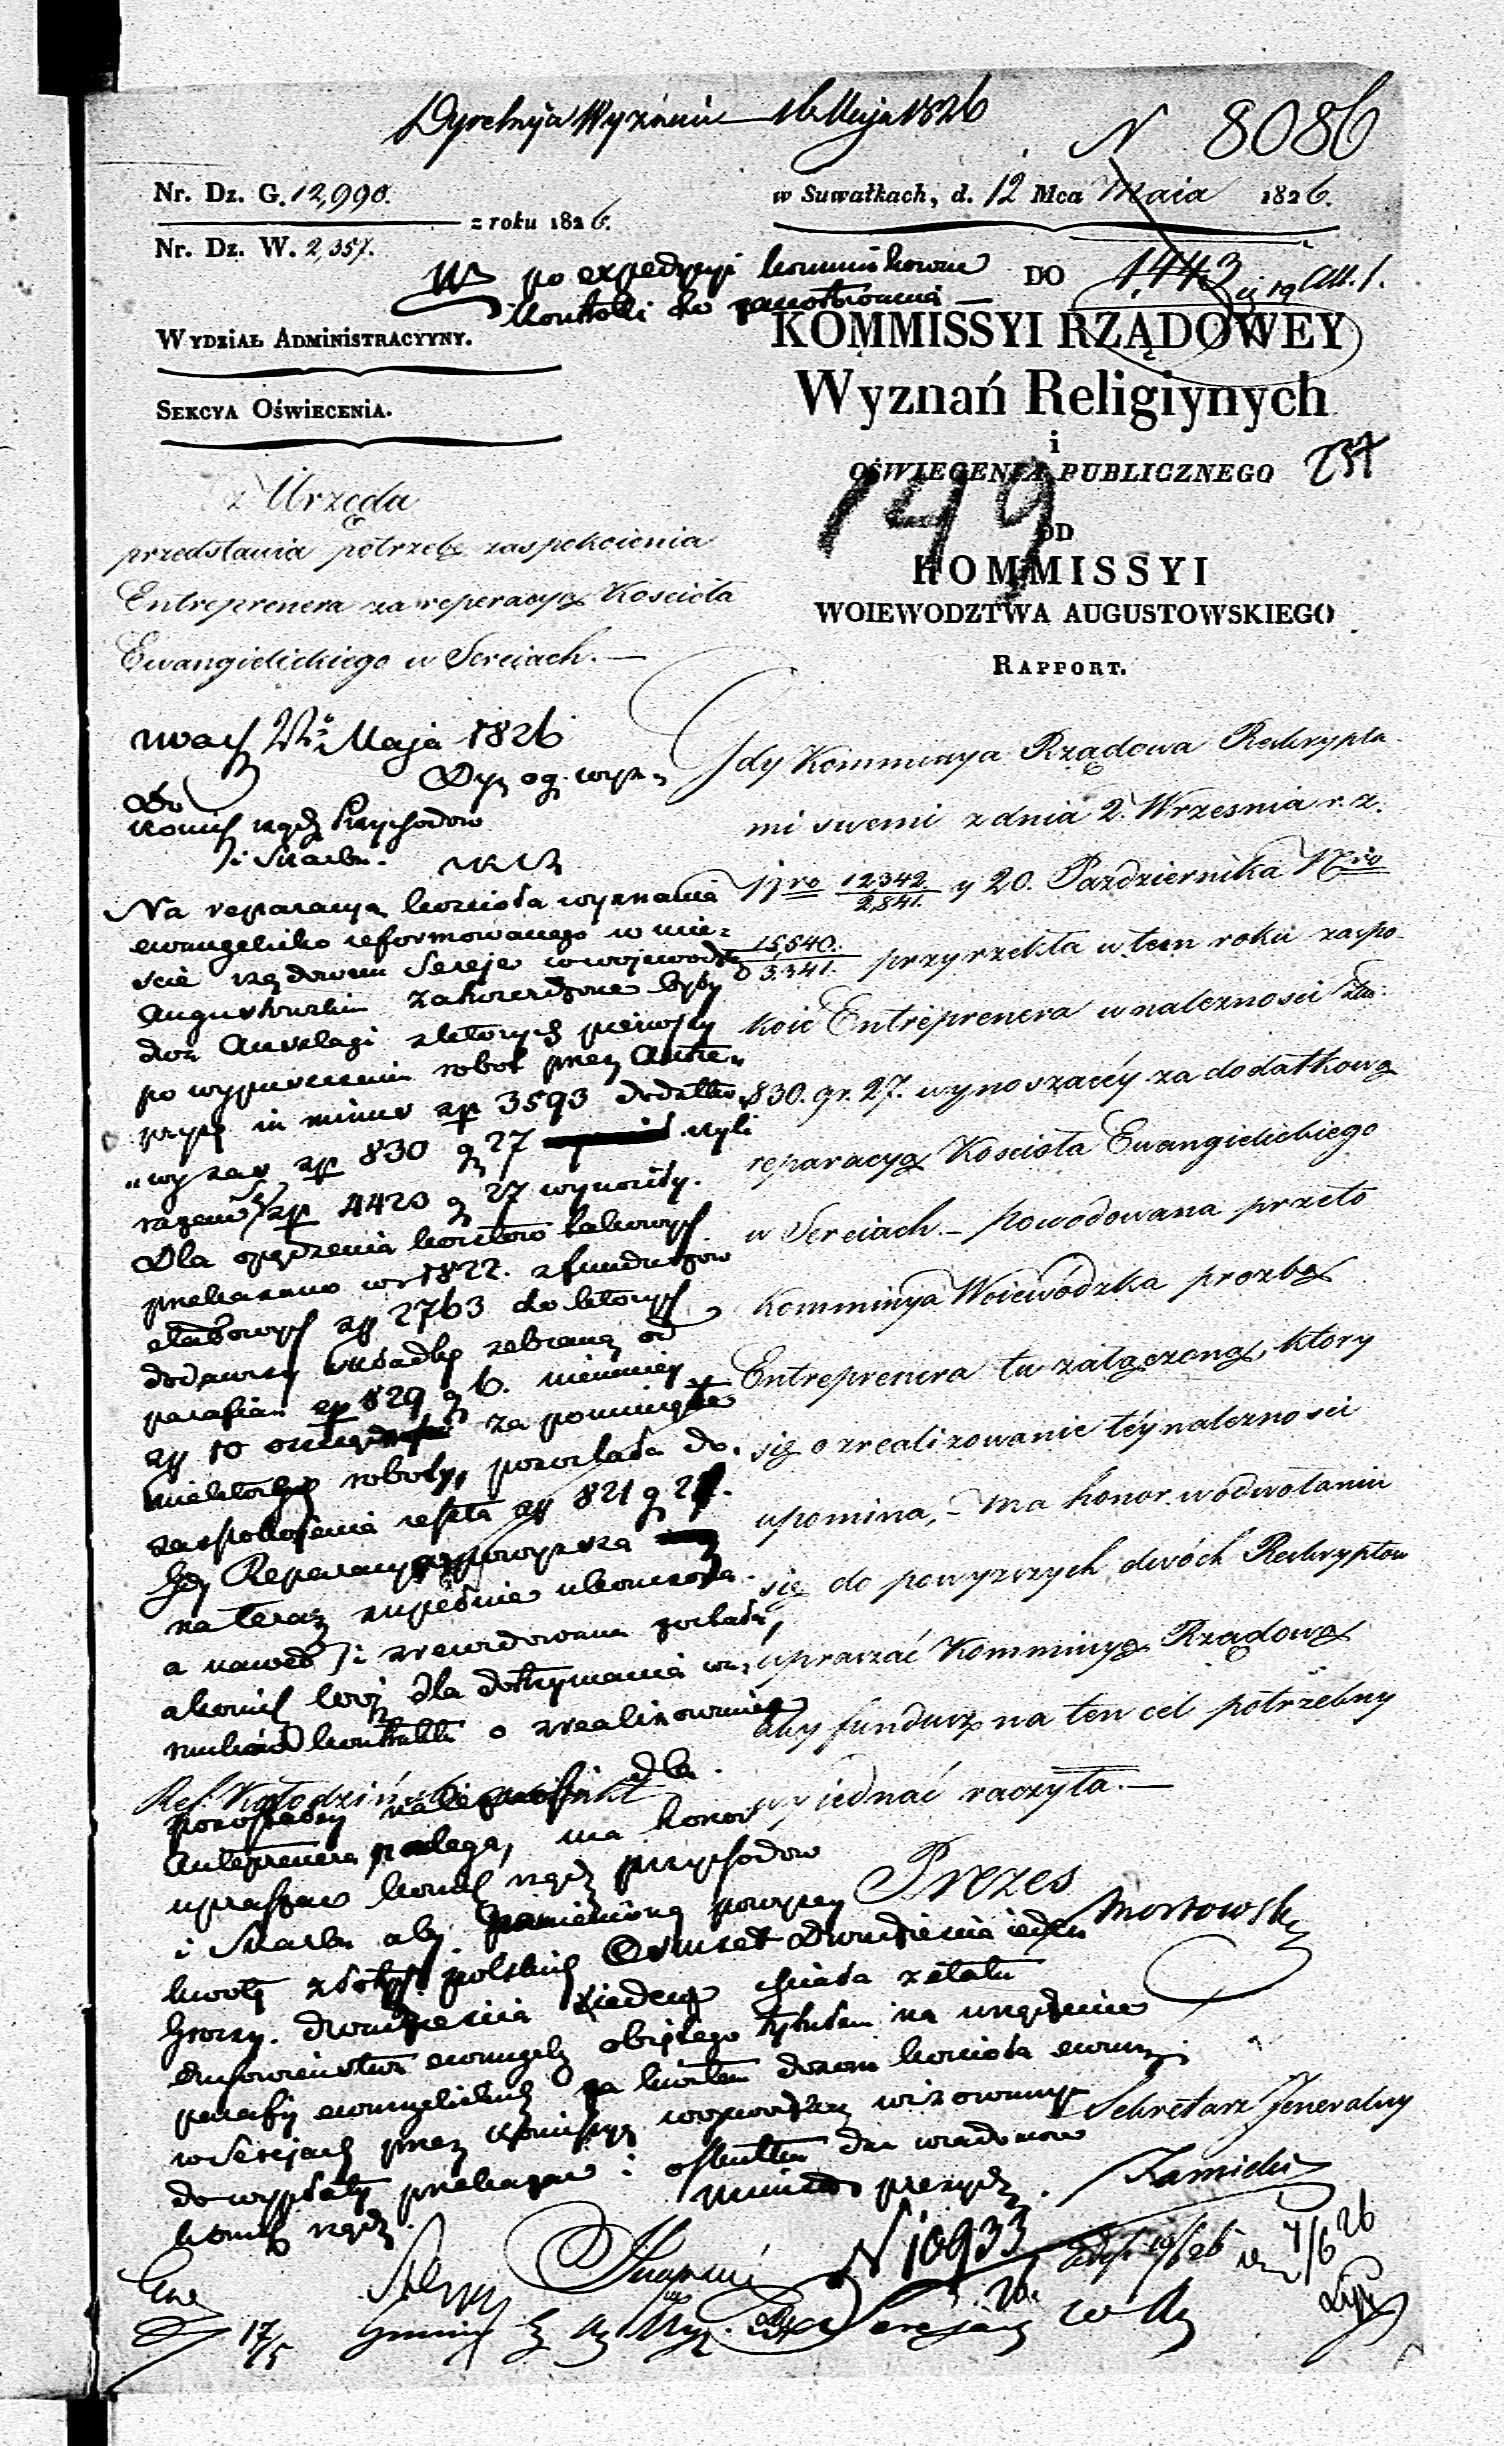 Dyrekcyia Wyznań 16 Maja 1826
N 8086
Nr. Dz. G. 12,990.
z roku 1826.
Nr. Dz. W. 2,357.
w Suwałkach, d. 12 Mca Maia 1826.
po expedycyi
DO
1,443
WYDZIAŁ ADMINISTRACYYNY.
SEKCYA OŚWIECENIA.
KOMMISSYI RZĄDOWEY
Wyznań Religiynych
i
OŚWIECENIA PUBLICZNEGO
149
OD
KOMMISSYI
WOIEWODZTWA AUGUSTOWSKIEGO
RAPPORT.
z Urzędu
przedstawia potrzebę zaspokoienia
Entreprenera za reperacyą Kościoła
Ewangielickiego w Sereiach. —
Gdy Kommissya Rządowa Reskrypta-
mi swemi z dnia 2. Września r. z.
Nro 12342/2,841. y 20. Października Nro
15,540./3341. przyrzekła w tem roku zaspo-
koić Entreprenera w należności Złp.
830. gr. 27. wynoszącéy za dodatkową
reparacyą Kościoła Ewangielickiego
w Sereiach. — powodowana przeto
Kommissya Woiewódzka prozbą
Entreprenera tu załączoną, który
się o zrealizowanie téy należności
upomina, — ma honor w odwołaniu
się do powyższych dwóch Reskryptów
upraszać Kommissyą Rządową
aby fundusz na ten cel potrzebny
wyiednać raczyła. —
Prezes
Sekretarz Jeneralny
Maja 1826
Do
Komis rząd Przychodow
i Skarbu.
Na reparacyą kościoła wyznania
ewangelicko reformowanego w mie-
ście rządowem Sereje w wojewodz
Augustowskim zatwierdzone były
dwa Anszlagi z których pierwszy
po wypuszczeniu robot przez Antre-
pryzę in minus zp 3593 dodatko
wy zaś zp 830 g 27 czyli
razem zp 4423 g 27 wynosiły.
Dla opędzenia kosztów takowych
przekazano w r 1822. z funduszow
etatowych zp 2763 do których
dodawszy składkę zebraną od
parafian zp 829 g 6. niemniey
zp 10 za pominięte
niektóre roboty, pozostała do
zaspokojenia reszta zp 821 g 27.
Gdy Reparacya powyższa
na teraz zupełnie ukończona
a nawet i zrewidowana została,
a komis woj dla dotrzymania wa-
runków kontraktu o zrealizowanie
Ref. Kołodziński
pozostałey należności dla
Antreprenera nalega, ma honor
upraszać komis rząd przychodow
i Skarbu aby powyżey
kwotę złotych polskich Osmset dwadzieścia ieden
Groszy dwadzieścia siedem z etatu
duchowieństwa ewangel objętego tytułem na urządzenie
parafij ewangelickich za kwitem dozoru kościoła ewang
w Serejach przez Komissyą wojewodzką wizowanym
do wypłaty przekazać i o skutku dać wiadomość
komis rząd.
Minister prezyd.
N 10933
17/5
7/6 26